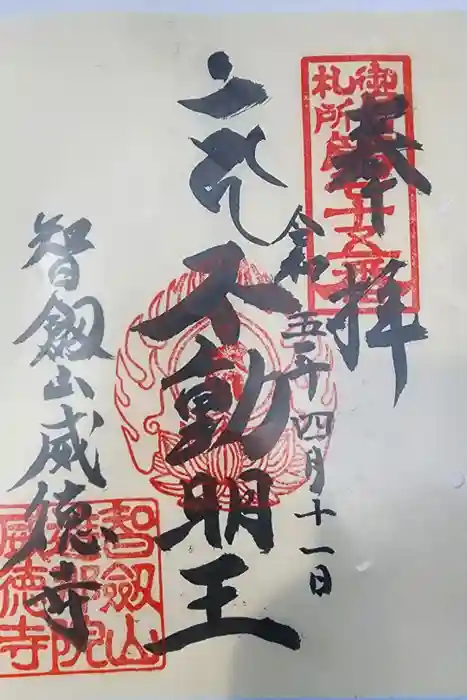 奉拝
御
札所
第十五番
令和五年四月十一日
不動明王
智劔山威徳寺
智劔山
院
威徳寺